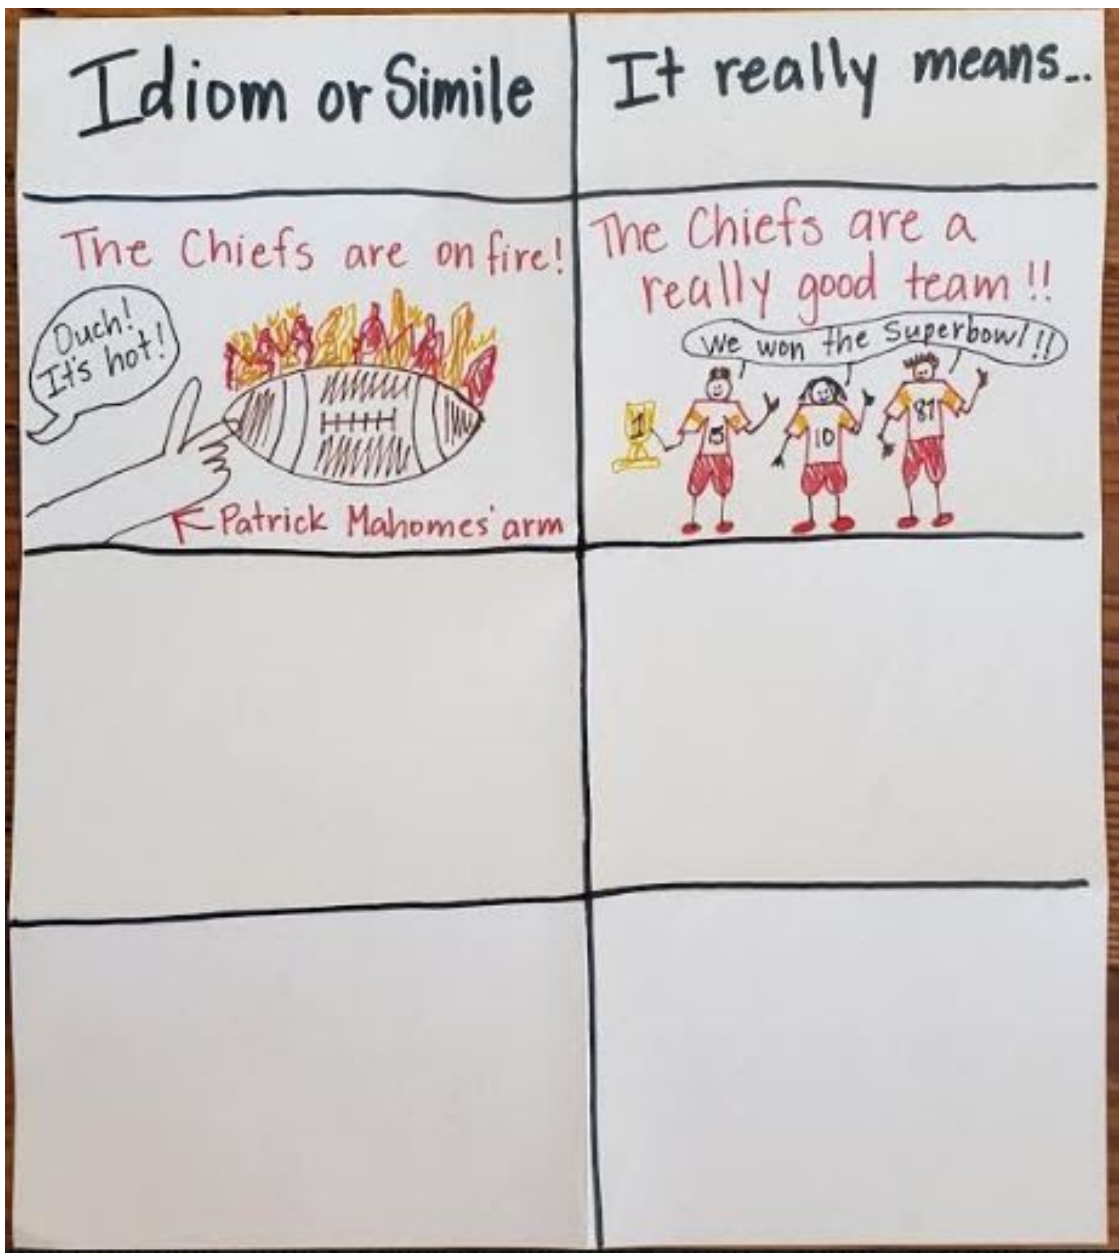 Idiom or Simile
It really means...
The Chiefs are on fire!
Ouch!
It's hot!
Patrick Mahomes' arm
The Chiefs are a
really good team!!
We won the Superbowl!!
1
5
10
87